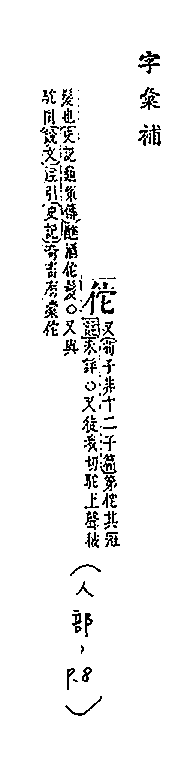 字彙補
佗
又荀子非十二子篇第佗其冠
註未詳○又徒我切駝上聲被
髮也史記龜策傳醮酒佗髮○又與
駝同說文註引史記奇畜有橐佗
(人部，P.8)